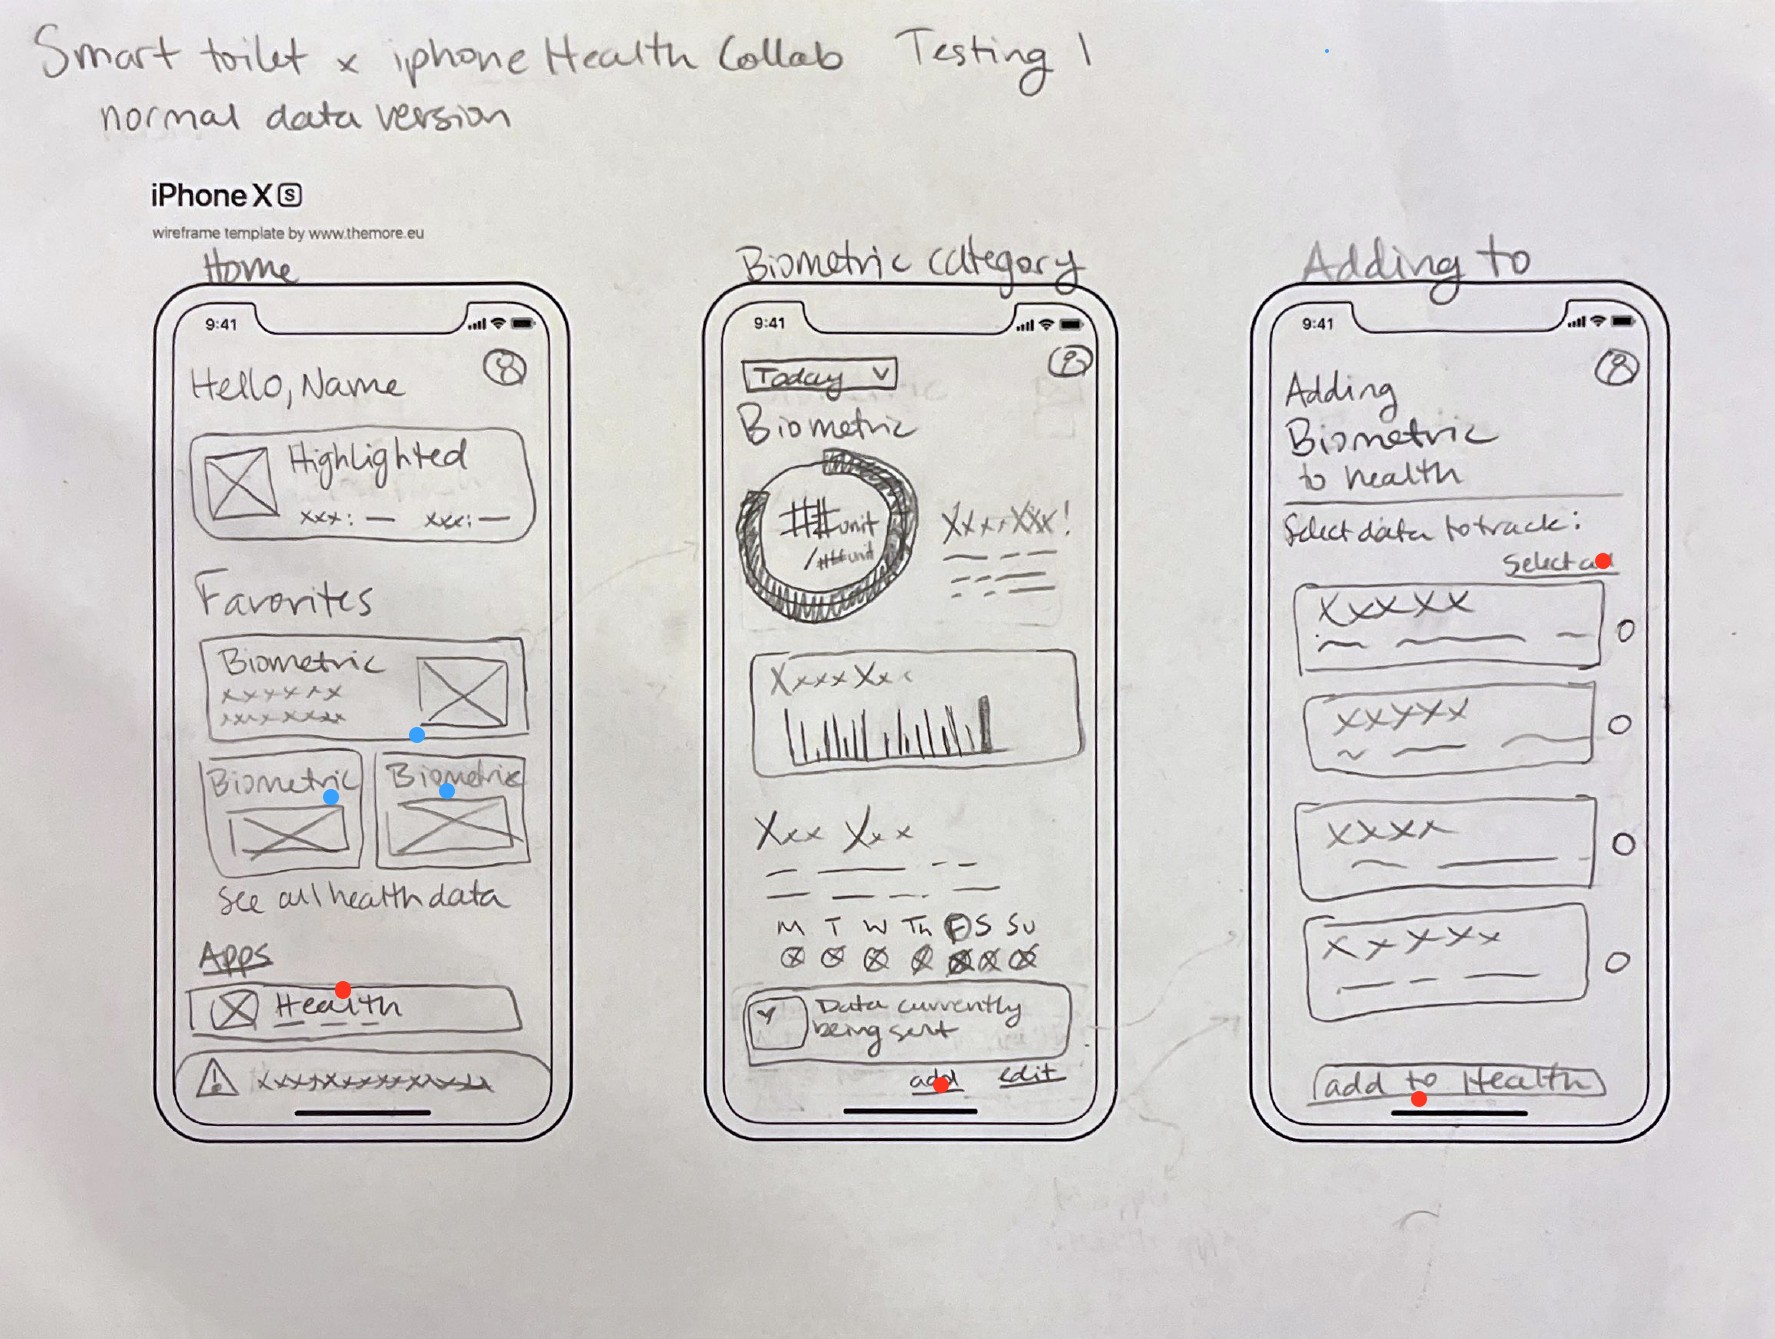 Smart toilet x iphone Health Collab Testing 1
normal data version
iPhone XS
wireframe template by www.themore.eu
Home
9:41
Hello, Name
Highlighted
xxx: — xxx: —
Favorites
Biometric
xxxxxxx
xxxxxxxx
Biometric
Biometric
See all health data
Apps
Health
Biometric category
9:41
Today
Biometric
##unit
/##unit
Xxxx Xxx!
Xxxx Xxx
Xxx Xxx
M T W Th F S Su
Data currently
being sent
add edit
Adding to
9:41
Adding
Biometric
to health
Select data to track:
Select all
Xxxxx
xxxxx
xxxx
xxxxx
add to Health